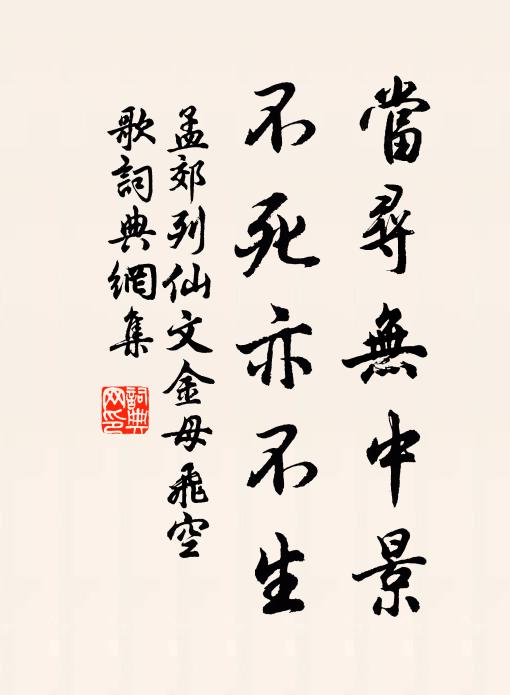 當尋無中景
不死亦不生
孟郊列仙文金母飛空
歌詞典網集
詞典网印